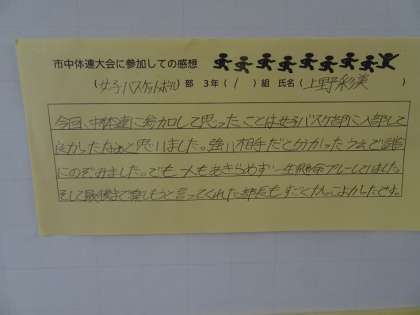 市中体連大会に参加しての感想
(女子バスケットボール)部 3年(1)組 氏名(上野彩美)
今回、中体連に参加して思ったことは女子バスケ部に入部して
良かったなぁと思いました。強い相手だと分かったうえで試合
にのぞみました。でも、一人もあきらめず一生懸命プレーしていました。
そして最後まで楽しもうと言ってくれた部長もすごくかっこよかったです。